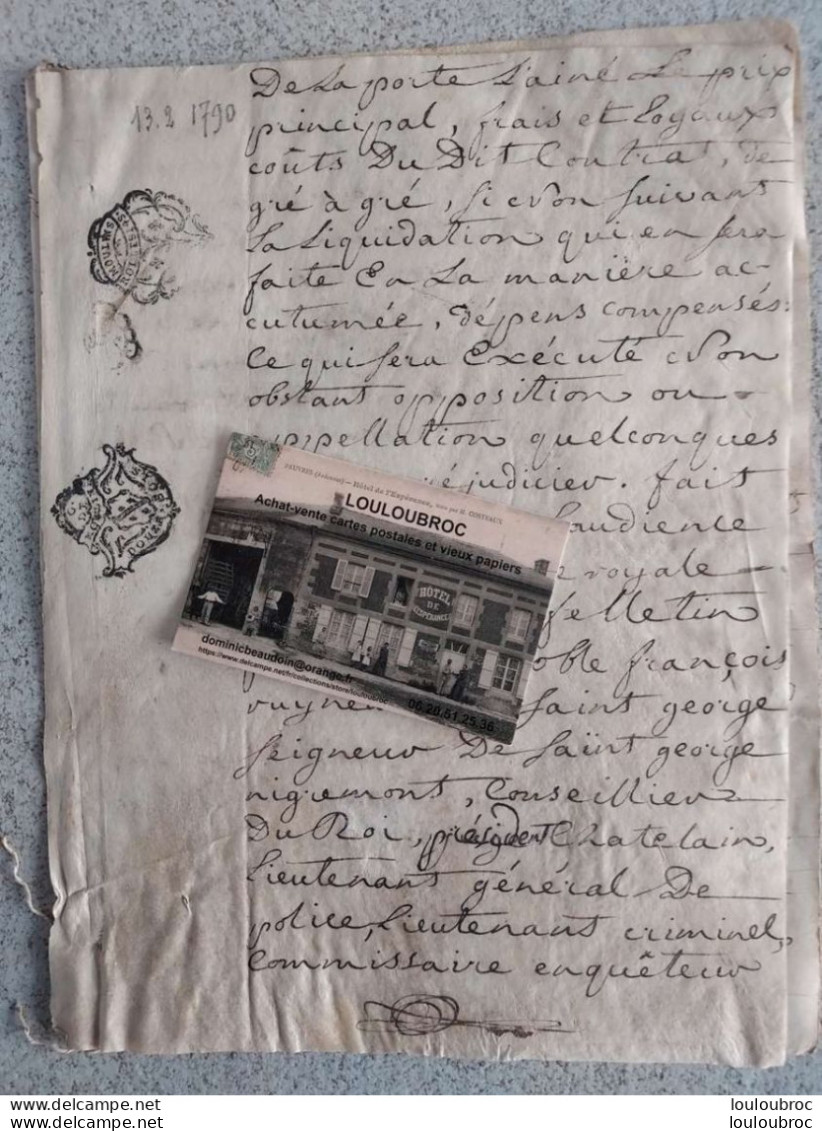 13.2 1790
De La porte L'ainé Le prix
principal, frais et Loyaux
coûts Du Dit Contrat, de
gré à gré, si non suivant
La Liquidation qui en sera
faite En La manière ac-
cutumée, dépens compensés.
Ce qui sera Exécuté Non
obstant opposition ou
appellation quelconques
éjudicier. fait
audience
royale
felletin
oble françois
Saint george
Seigneur De Saint george
nigremont, Conseillier
Du Roi, président Chatelain,
Lieutenant général De
police, Lieutenant criminel,
Commissaire enquêteur
Hôtel de l'Espérance
LOULOUBROC
Achat-vente cartes postales et vieux papiers
HÔTEL
DE
L'ESPÉRANCE
dominicbeaudoin@orange.fr
https://www.delcampe.net/fr/collections/store/louloubroc
06.28.61.25.36
louloubroc
louloubroc
louloubroc
louloubroc